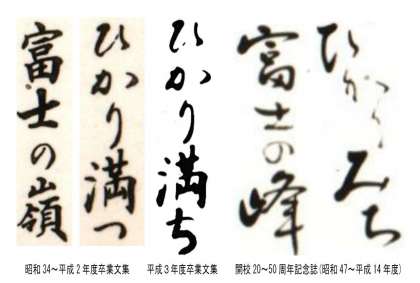 ひかり満つ
富士の嶺
ひかり満ち
ひかりみち
富士の峰
昭和34~平成2年度卒業文集
平成3年度卒業文集
開校20~50周年記念誌(昭和47~平成14年度)